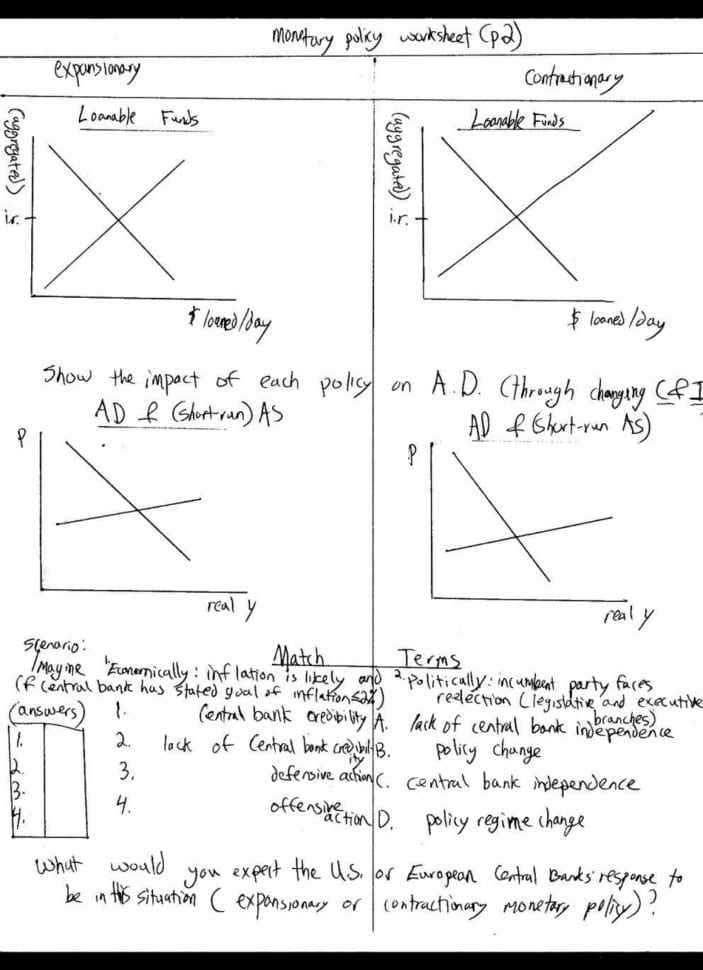 monetary policy worksheet (p2)
expansionary
contractionary
Loanable Funds
(aggregated)
i.r.
$ loaned/day
Loanable Funds
(aggregated)
i.r.
$ loaned/day
Show the impact of each policy on A.D. (through changing C & I
AD & (short-run) AS
P
real y
AD & (short-run AS)
P
real y
Scenario:
Match Terms
Imagine 1. Economically: inflation is likely and
(if central bank has stated goal of inflation≤2%)
2. Politically: incumbent party faces
reelection (legislative and executive
branches)
(answers)
1.
2.
3.
4.
1. Central bank credibility
2. lack of Central bank credibility
3. defensive action
4. offensive action
A. lack of central bank independence
B. policy change
C. central bank independence
D. policy regime change
What would you expect the U.S. or European Central Banks' response to
be in this situation (expansionary or contractionary monetary policy)?